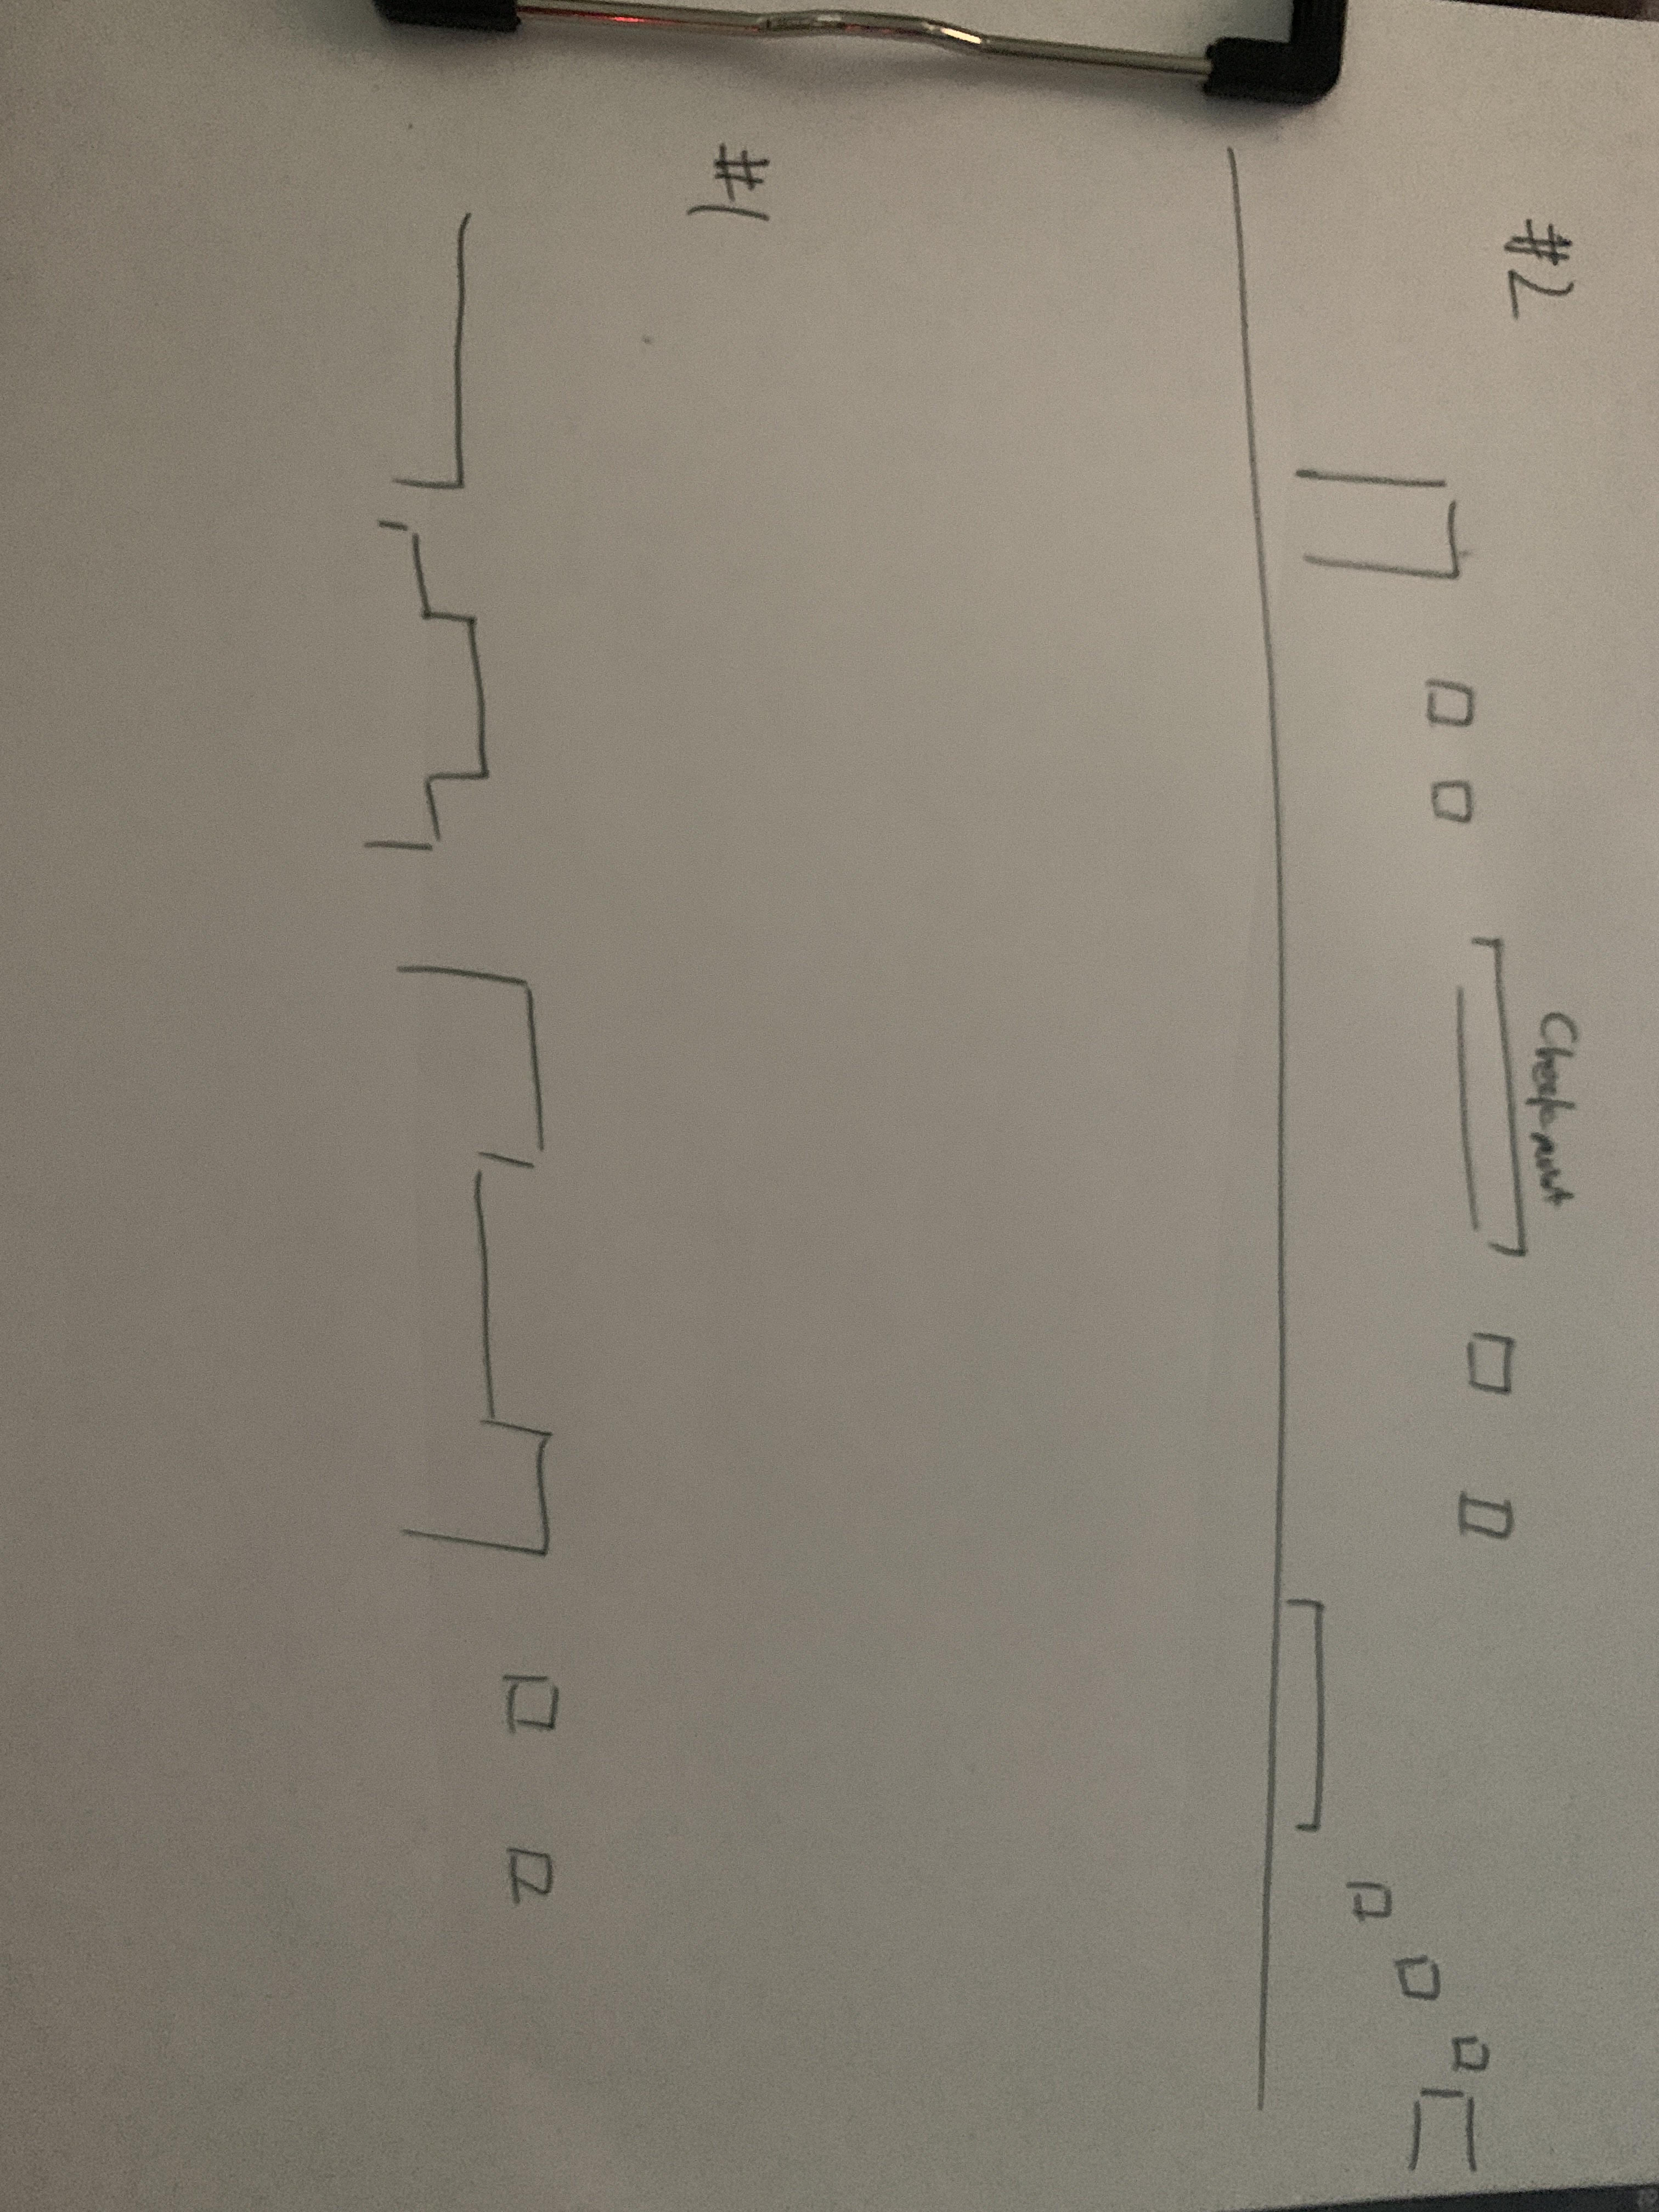 #2
Checkpoint
#1